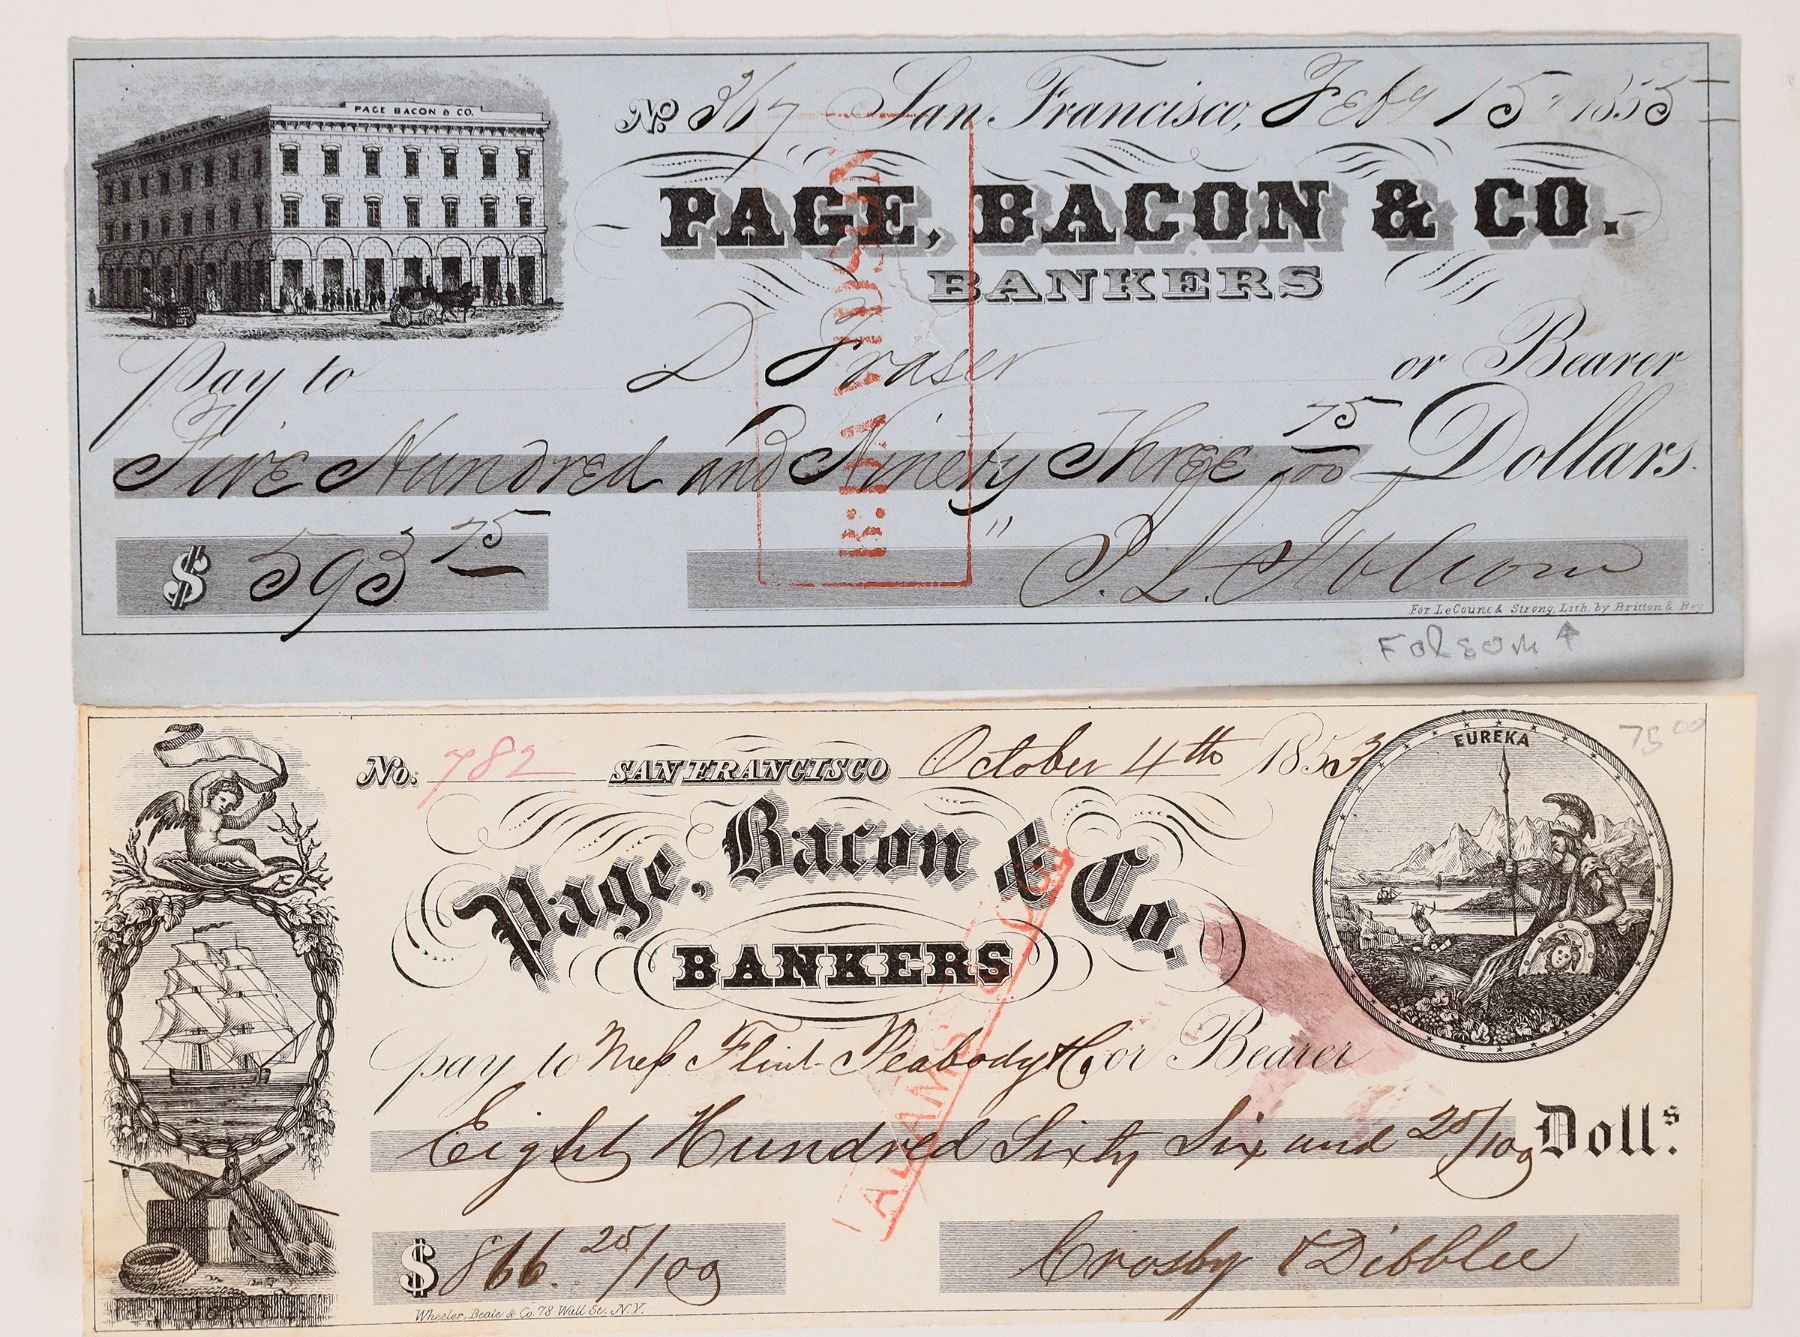 PAGE BACON & CO.
PAGE BACON & CO.
No 367 San Francisco, Feby 15, 1855
PAGE, BACON & CO.
BANKERS
Pay to D Fraser or Bearer
Five Hundred and Ninety Three 75/100 Dollars.
$ 593 75
For LeCount & Strong, Lith. by Britton & Rey
Folsom ↑
No. 782 SAN FRANCISCO October 4th 1853
EUREKA
75 00
Page, Bacon & Co.
BANKERS
pay to Mess Flint Peabody & Co or Bearer
Eight Hundred Sixty Six and 25/100 Doll.s
$ 866. 25/100 Crosby & Dibblee
Wheeler, Beale & Co. 78 Wall St. N.Y.
ADAMS & CO